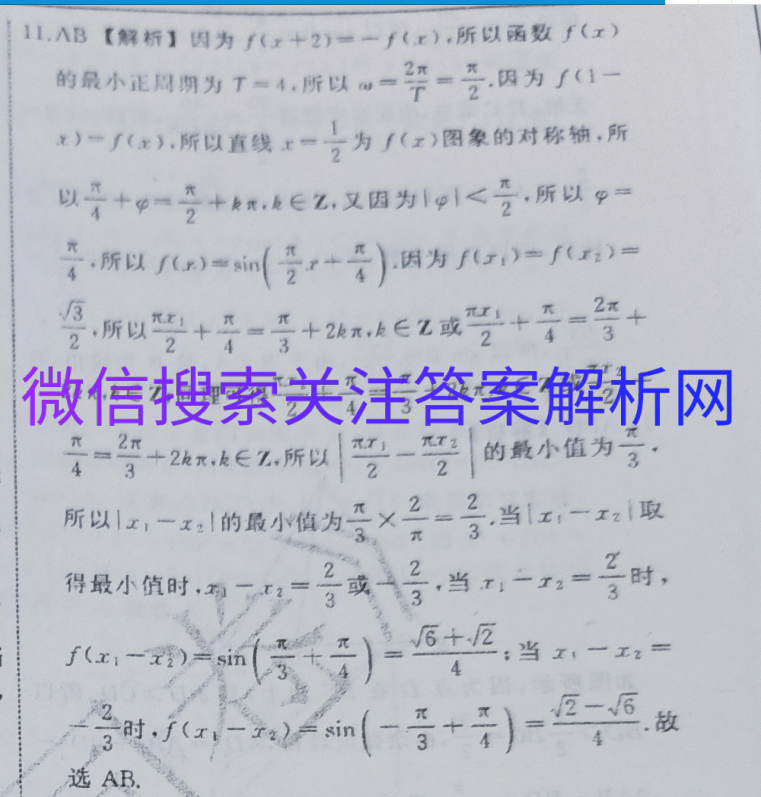 11.AB 【解析】因为 f(x+2)=-f(x),所以函数 f(x)
的最小正周期为 T=4,所以 ω=2π/T=π/2.因为 f(1-
x)=f(x),所以直线 x=1/2为 f(x)图象的对称轴,所
以π/4+φ=π/2+kπ,k∈Z,又因为|φ|<π/2,所以 φ=
π/4,所以 f(x)=sin(π/2x+π/4).因为 f(x₁)=f(x₂)=
√3/2,所以πx₁/2+π/4=π/3+2kπ,k∈Z或πx₁/2+π/4=2π/3+
微信搜索关注答案解析网
π/4=2π/3+2kπ,k∈Z,所以|πx₁/2-πx₂/2|的最小值为π/3.
所以|x₁-x₂|的最小值为π/3×2/π=2/3.当|x₁-x₂|取
得最小值时,x₁-x₂=2/3或-2/3,当 x₁-x₂=2/3时,
f(x₁-x₂)=sin(π/3+π/4)=(√6+√2)/4;当 x₁-x₂=
-2/3时,f(x₁-x₂)=sin(-π/3+π/4)=(√2-√6)/4.故
选 AB.